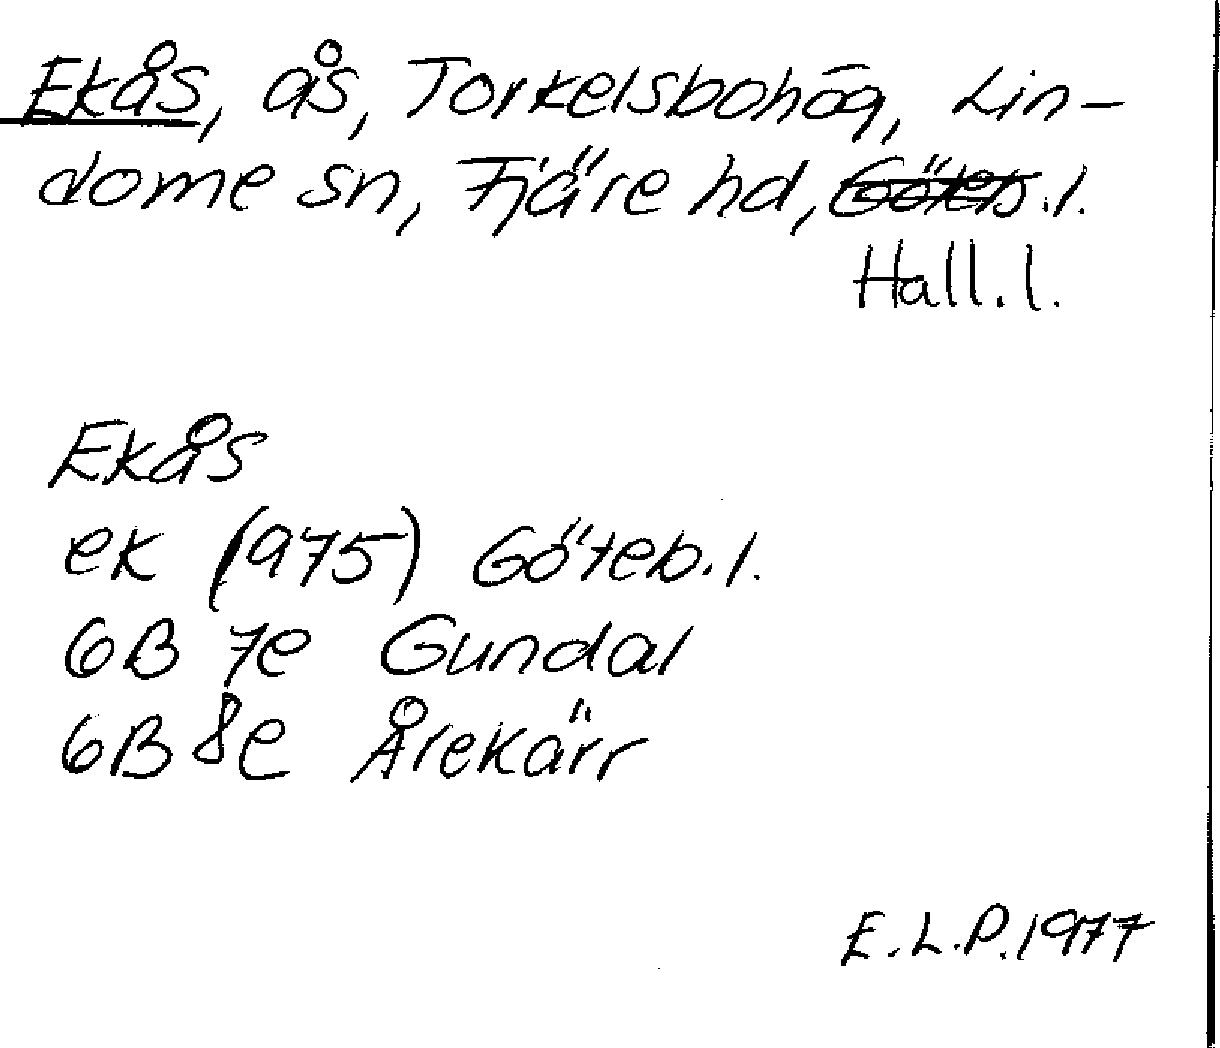 Ekås, ås, Torkelsbohög, Lin-
dome sn, Fjäre hd, Göteb.l.
Hall.l.
Ekås
ek (975) Göteb.l.
6B 7e Gundal
6B 8e Årekärr
E.L.P. 1977